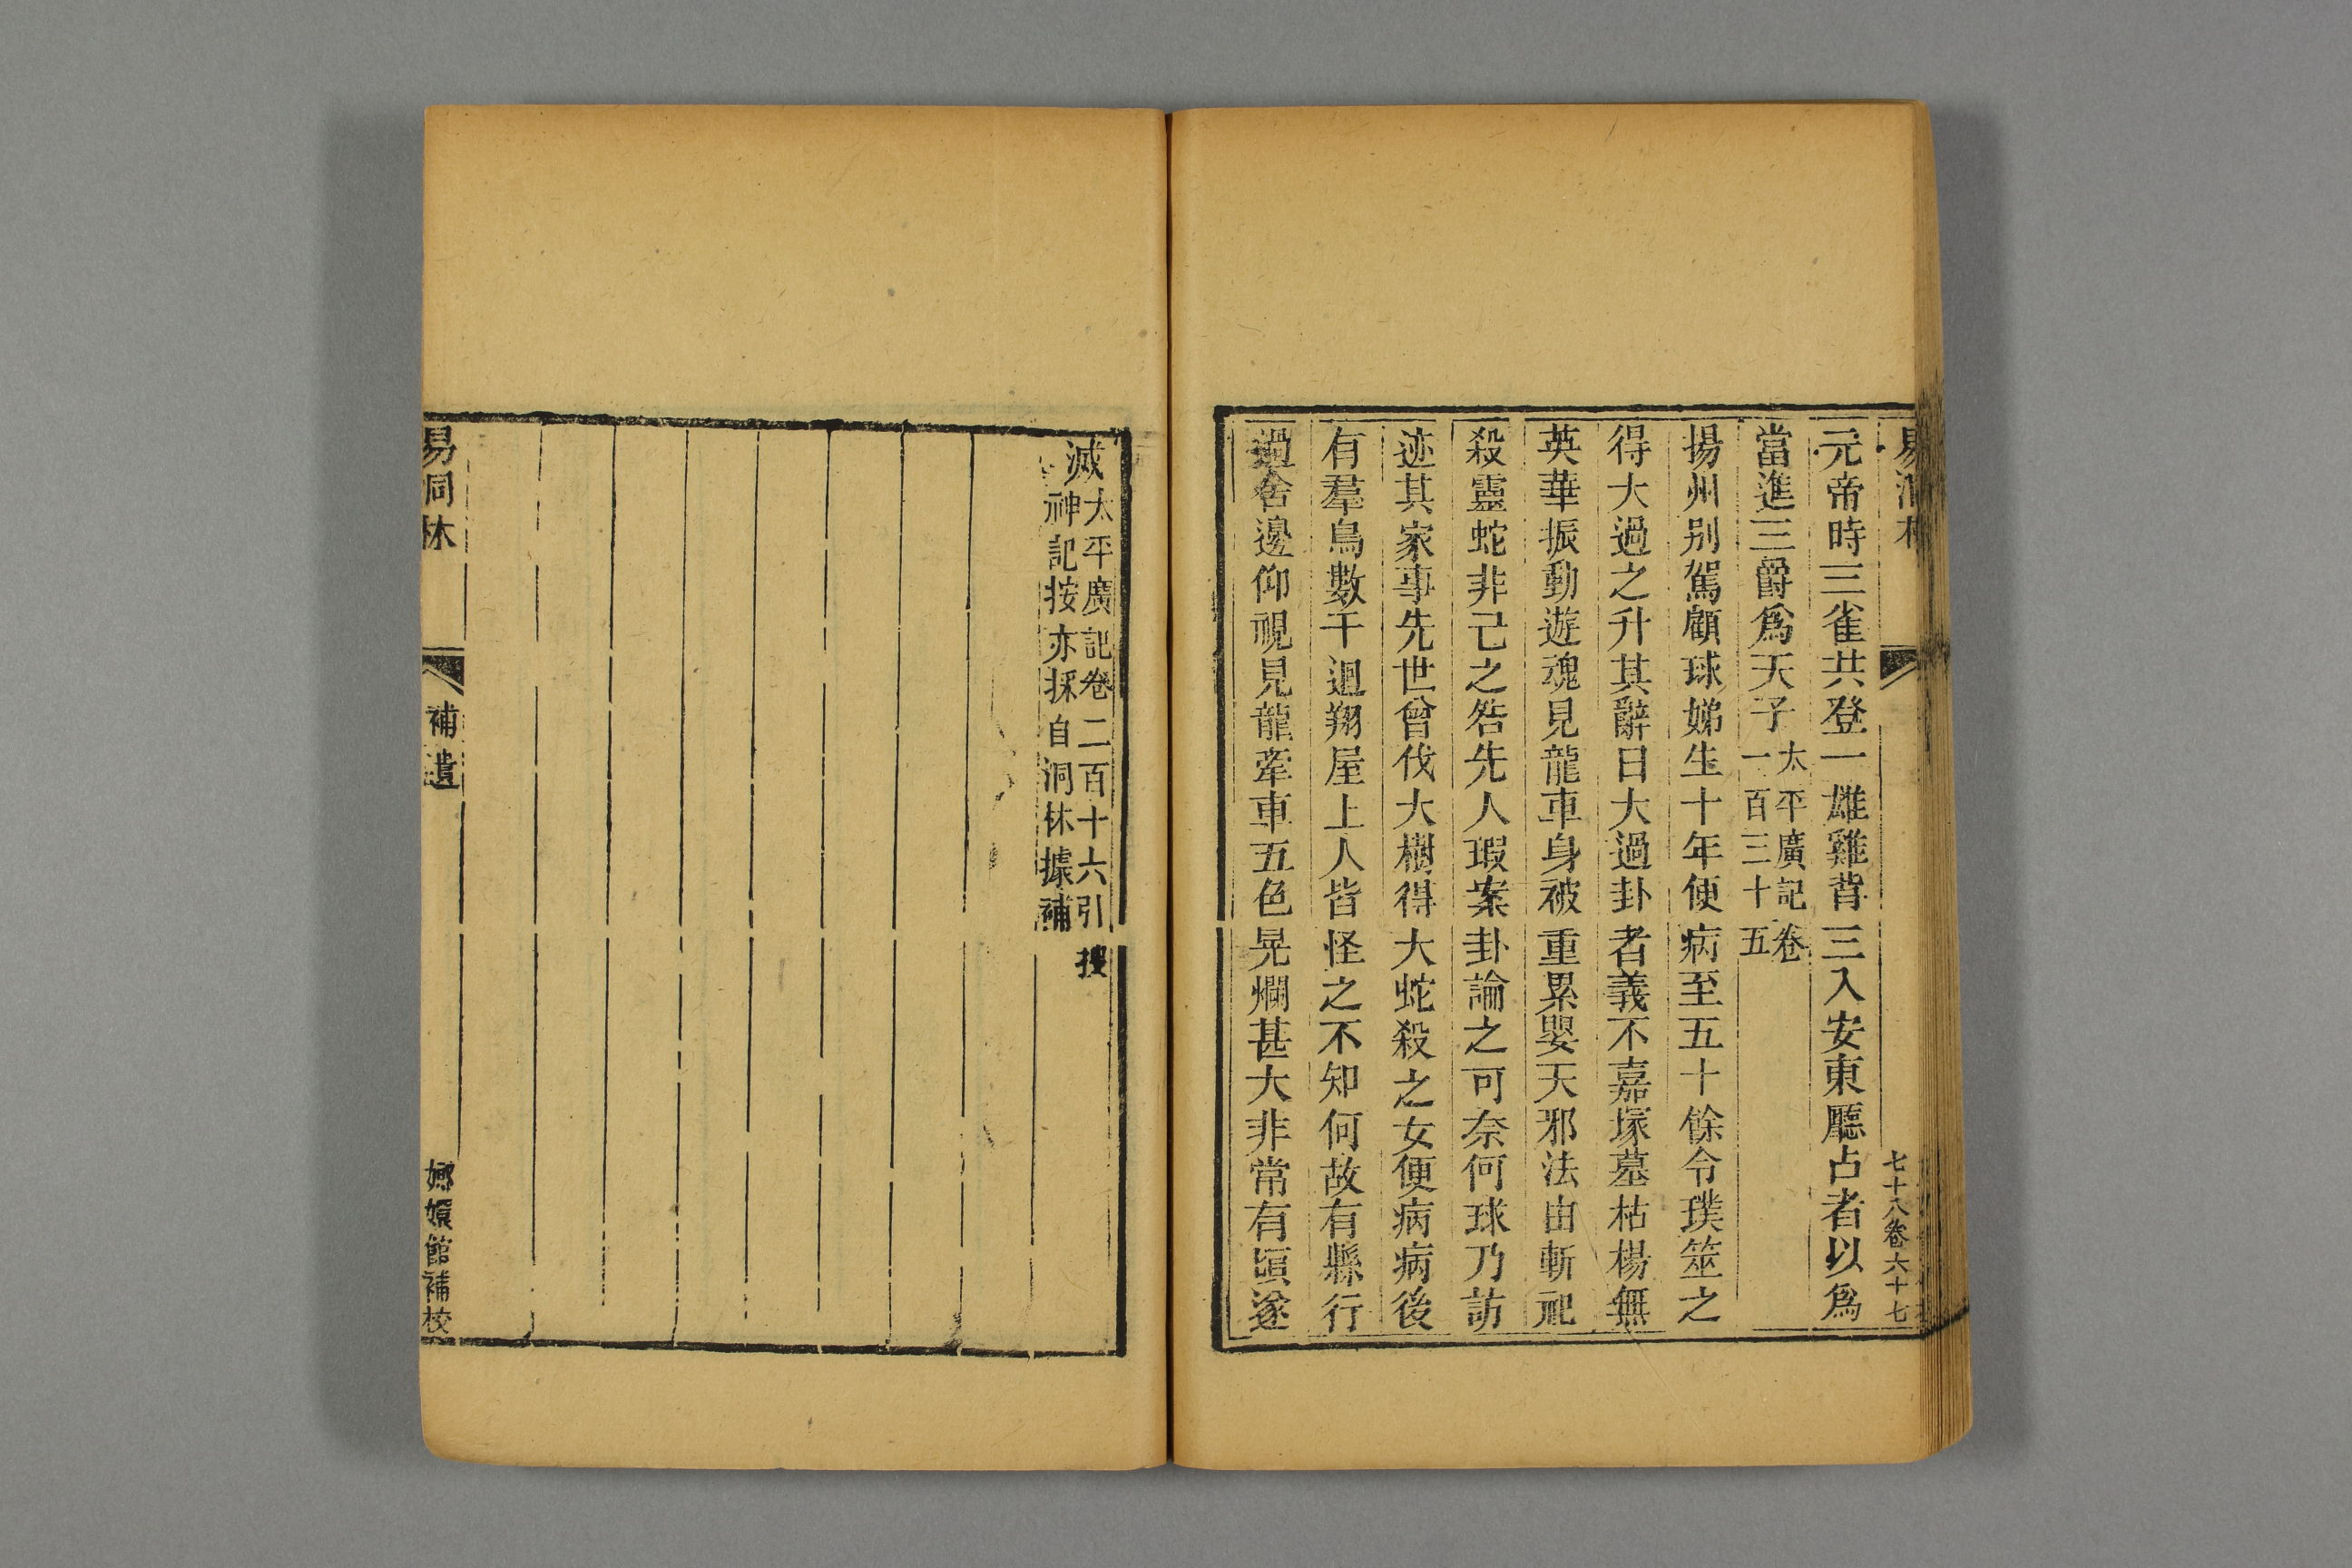 易洞林
七十八卷六十七
元帝時三雀共登一雄雞背三入安東廳占者以爲
當進三爵爲天子太平廣記卷一百三十五
揚州别駕顧球娣生十年便病至五十餘令璞筮之
得大過之升其辭曰大過卦者義不嘉塚墓枯楊無
英華振動遊魂見龍車身被重累嬰天邪法由斬祀
殺靈蛇非己之咎先人瑕案卦論之可奈何球乃訪
迹其家事先世曾伐大樹得大蛇殺之女便病病後
有羣鳥數千迴翔屋上人皆怪之不知何故有縣行
過舍邊仰視見龍牽車五色晃爛甚大非常有頃遂
滅太平廣記卷二百十六引搜神記按亦採自洞林據補
易洞林
補遺
嫏嬛館補校